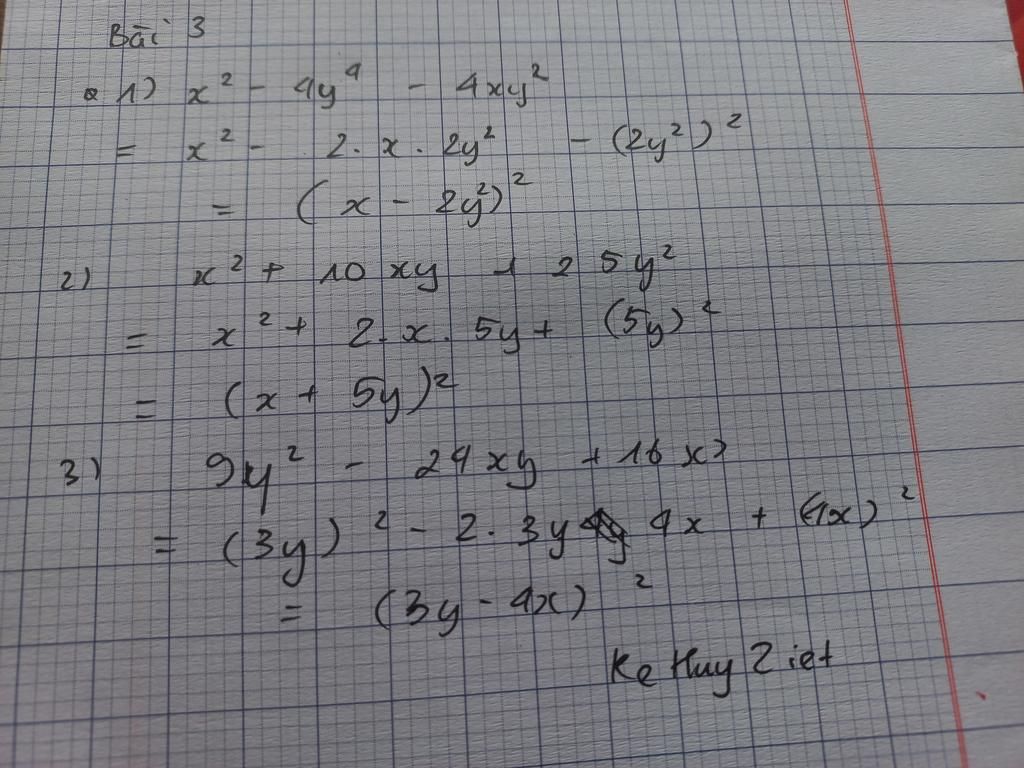 Bài 3
1) x² - 4y⁴ - 4xy²
= x² - 2. x. 2y² - (2y²)²
= (x - 2y²)²
2) x² + 10xy + 25y²
= x² + 2. x. 5y + (5y)²
= (x + 5y)²
3) 9y² - 24xy + 16x²
= (3y)² - 2. 3y 4x + (4x)²
= (3y - 4x)²
Ke Huy Ziet